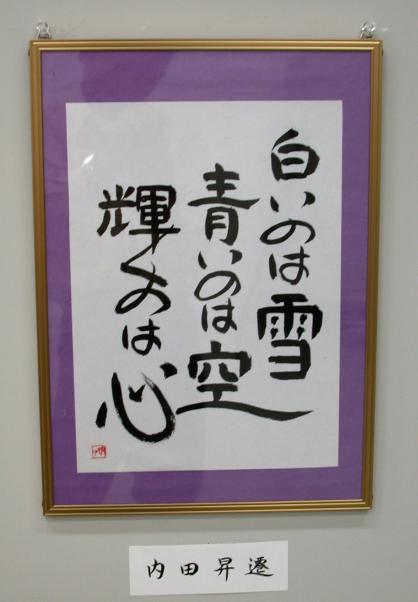 白いのは雪
青いのは空
輝くのは心
内田昇遷